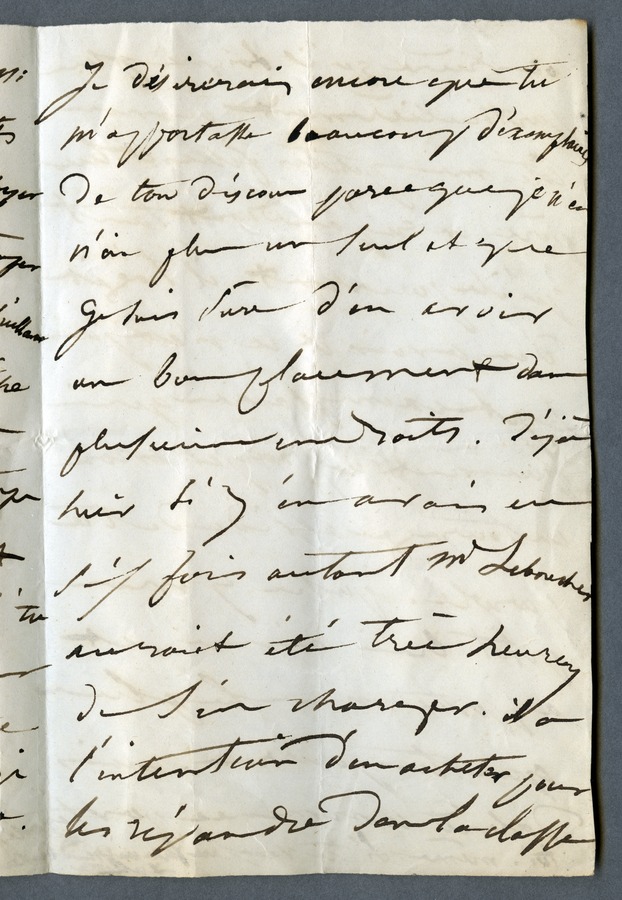 Je désirerais encore que tu
m'apportasse beaucoup d'éxemplaires
de ton discour parceque je n'en
n'ai plus un seul et que
je suis sure d'en avoir
un bon placement dans
plusieurs endroits. Déjà
hier si j'en avais eu
dix fois autant Mr Leboucher
auroit été très heureux
de s'en charger. il a
l'intention d'en acheter pour
les répandre dans la classe